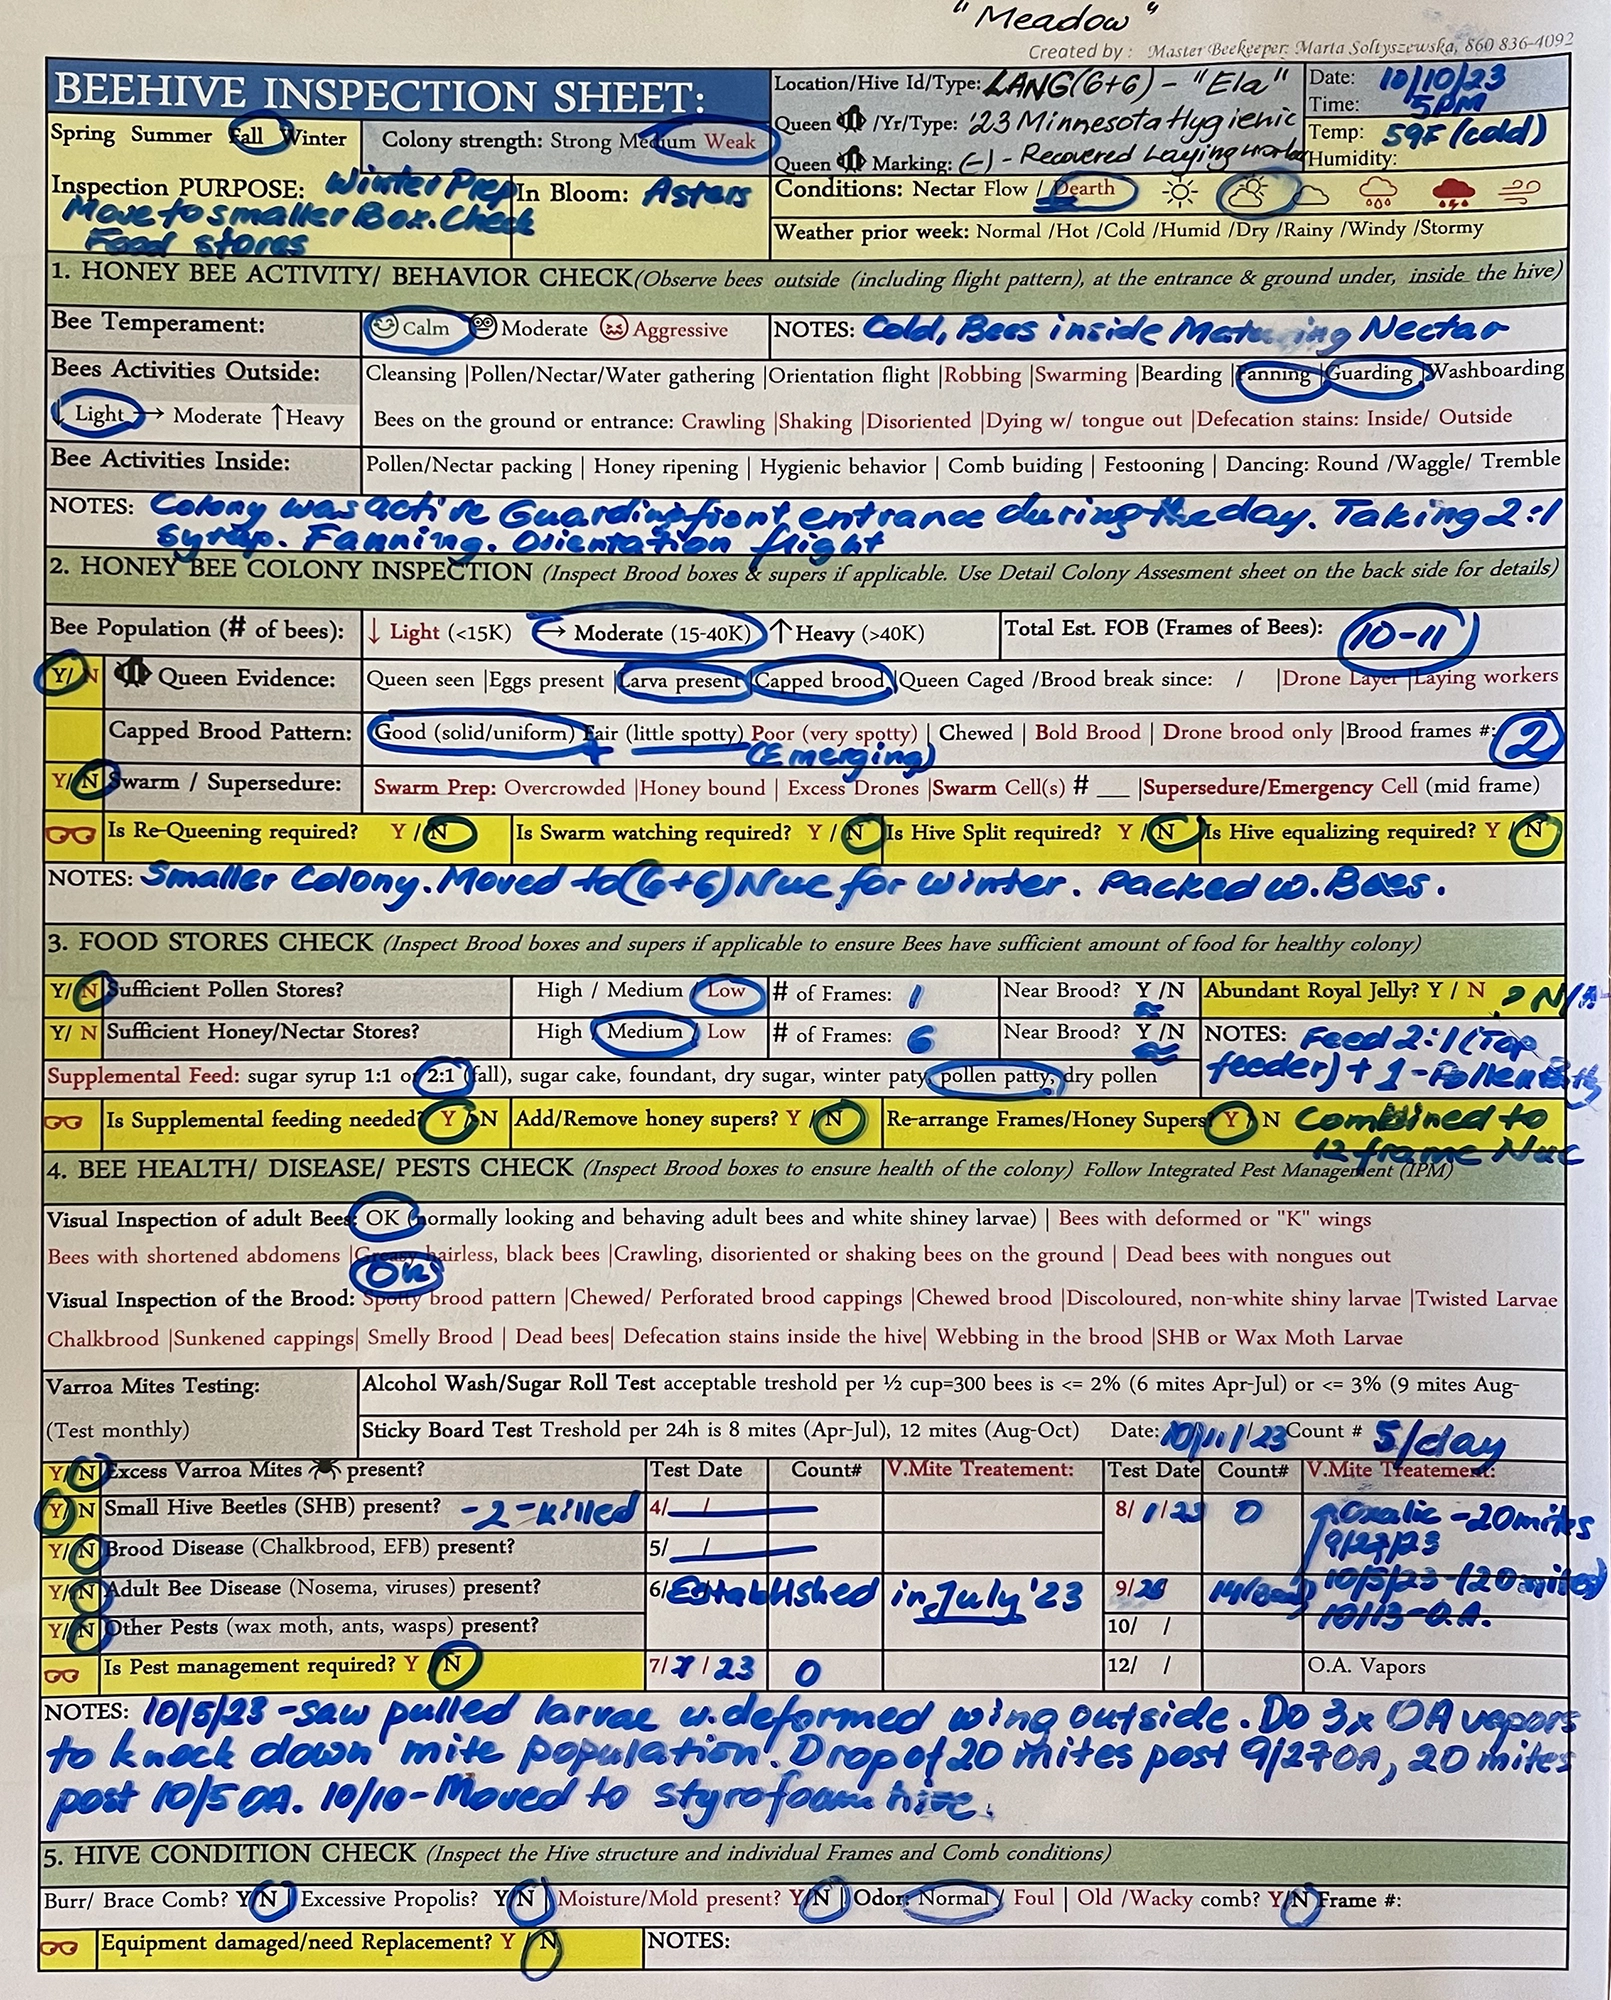 "Meadow"
Created by : Master Beekeeper: Marta Soltyszewska, 860 836-4092
BEEHIVE INSPECTION SHEET:
Location/Hive Id/Type: LANG(6+6) - "Ela"
Date: 10/10/23
Time: 5PM
Spring Summer Fall Winter
Colony strength: Strong Medium Weak
Queen /Yr/Type: '23 Minnesota Hygienic
Queen Marking: (-) - Recovered Laying worker
Temp: 59F (cold)
Humidity:
Inspection PURPOSE: Winter Prep
Move to smaller Box. Check
Food stores
In Bloom: Asters
Conditions: Nectar Flow / Dearth
Weather prior week: Normal /Hot /Cold /Humid /Dry /Rainy /Windy /Stormy
1. HONEY BEE ACTIVITY/ BEHAVIOR CHECK(Observe bees outside (including flight pattern), at the entrance & ground under, inside the hive)
Bee Temperament: Calm Moderate Aggressive NOTES: Cold, Bees inside Maturing Nectar
Bees Activities Outside: Cleansing |Pollen/Nectar/Water gathering |Orientation flight |Robbing |Swarming |Bearding |Fanning |Guarding |Washboarding
↓ Light → Moderate ↑Heavy Bees on the ground or entrance: Crawling |Shaking |Disoriented |Dying w/ tongue out |Defecation stains: Inside/ Outside
Bee Activities Inside: Pollen/Nectar packing | Honey ripening | Hygienic behavior | Comb buiding | Festooning | Dancing: Round /Waggle/ Tremble
NOTES: Colony was active Guarding front entrance during the day. Taking 2:1
Syrup. Fanning. Orientation flight
2. HONEY BEE COLONY INSPECTION (Inspect Brood boxes & supers if applicable. Use Detail Colony Assesment sheet on the back side for details)
Bee Population (# of bees): ↓ Light (<15K) → Moderate (15-40K) ↑Heavy (>40K) Total Est. FOB (Frames of Bees): 10-11
Y/ N Queen Evidence: Queen seen |Eggs present |Larva present |Capped brood |Queen Caged /Brood break since: / |Drone Layer |Laying workers
Capped Brood Pattern: Good (solid/uniform) Fair (little spotty) Poor (very spotty) | Chewed | Bold Brood | Drone brood only |Brood frames #: 2
(Emerging)
Y/ N Swarm / Supersedure: Swarm Prep: Overcrowded |Honey bound | Excess Drones |Swarm Cell(s) # __ |Supersedure/Emergency Cell (mid frame)
Is Re-Queening required? Y / N Is Swarm watching required? Y / N Is Hive Split required? Y / N Is Hive equalizing required? Y / N
NOTES: Smaller Colony. Moved to (6+6) Nuc for winter. Packed w. Bees.
3. FOOD STORES CHECK (Inspect Brood boxes and supers if applicable to ensure Bees have sufficient amount of food for healthy colony)
Y/ N Sufficient Pollen Stores? High / Medium / Low # of Frames: 1 Near Brood? Y /N Abundant Royal Jelly? Y / N ? N/A
Y/ N Sufficient Honey/Nectar Stores? High / Medium / Low # of Frames: 6 Near Brood? Y /N NOTES: Feed 2:1 (Top
Supplemental Feed: sugar syrup 1:1 or 2:1 (fall), sugar cake, foundant, dry sugar, winter paty, pollen patty, dry pollen feeder) + 1-Pollen Patty
Is Supplemental feeding needed? Y / N Add/Remove honey supers? Y / N Re-arrange Frames/Honey Supers? Y / N Combined to
12 frame Nuc
4. BEE HEALTH/ DISEASE/ PESTS CHECK (Inspect Brood boxes to ensure health of the colony) Follow Integrated Pest Management (IPM)
Visual Inspection of adult Bees: OK (normally looking and behaving adult bees and white shiney larvae) | Bees with deformed or "K" wings
Bees with shortened abdomens |Greasy hairless, black bees |Crawling, disoriented or shaking bees on the ground | Dead bees with nongues out
OK
Visual Inspection of the Brood: Spotty brood pattern |Chewed/ Perforated brood cappings |Chewed brood |Discoloured, non-white shiny larvae |Twisted Larvae
Chalkbrood |Sunkened cappings| Smelly Brood | Dead bees| Defecation stains inside the hive| Webbing in the brood |SHB or Wax Moth Larvae
Varroa Mites Testing: Alcohol Wash/Sugar Roll Test acceptable treshold per ½ cup=300 bees is <= 2% (6 mites Apr-Jul) or <= 3% (9 mites Aug-
(Test monthly) Sticky Board Test Treshold per 24h is 8 mites (Apr-Jul), 12 mites (Aug-Oct) Date: 10/11/23 Count # 5/day
Y/ N Excess Varroa Mites present? Test Date Count# V.Mite Treatement: Test Date Count# V.Mite Treatement:
Y/ N Small Hive Beetles (SHB) present? -2-killed 4/ / 8/ 1/23 0 Oxalic -20mites
9/27/23
Y/ N Brood Disease (Chalkbrood, EFB) present? 5/ /
Y/ N Adult Bee Disease (Nosema, viruses) present? 6/ Established in July '23 9/26 10/5/23-(20 mites)
Y/ N Other Pests (wax moth, ants, wasps) present? 10/ / 10/13-O.A.
Is Pest management required? Y / N 7/ /23 0 12/ / O.A. Vapors
NOTES: 10/5/23 -saw pulled larvae w. deformed wing outside. Do 3x OA vapors
to knock down mite population. Drop of 20 mites post 9/27 OA, 20 mites
post 10/5 OA. 10/10-Moved to styrofoam hive.
5. HIVE CONDITION CHECK (Inspect the Hive structure and individual Frames and Comb conditions)
Burr/ Brace Comb? Y/N | Excessive Propolis? Y/N | Moisture/Mold present? Y/N | Odor: Normal / Foul | Old /Wacky comb? Y/N Frame #:
Equipment damaged/need Replacement? Y / N NOTES: